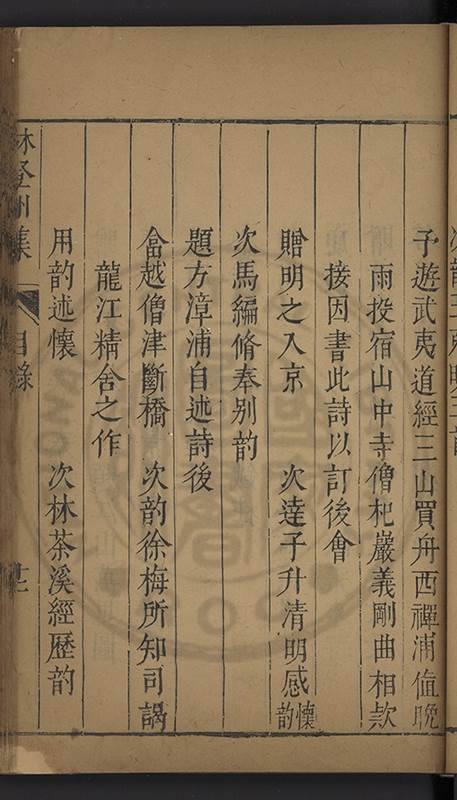 予遊武夷道經三山買舟西禪浦值晚
雨投宿山中寺僧杞巖義剛曲相款
接因書此詩以訂後會
贈明之入京　次達子升清明感懷韵
次馬編脩奉别韵
題方漳浦自述詩後
畣越僧津斷橋　次韵徐梅所知司謁
龍江精舍之作
用韵述懷　次林茶溪經歷韵
林登州集　目錄